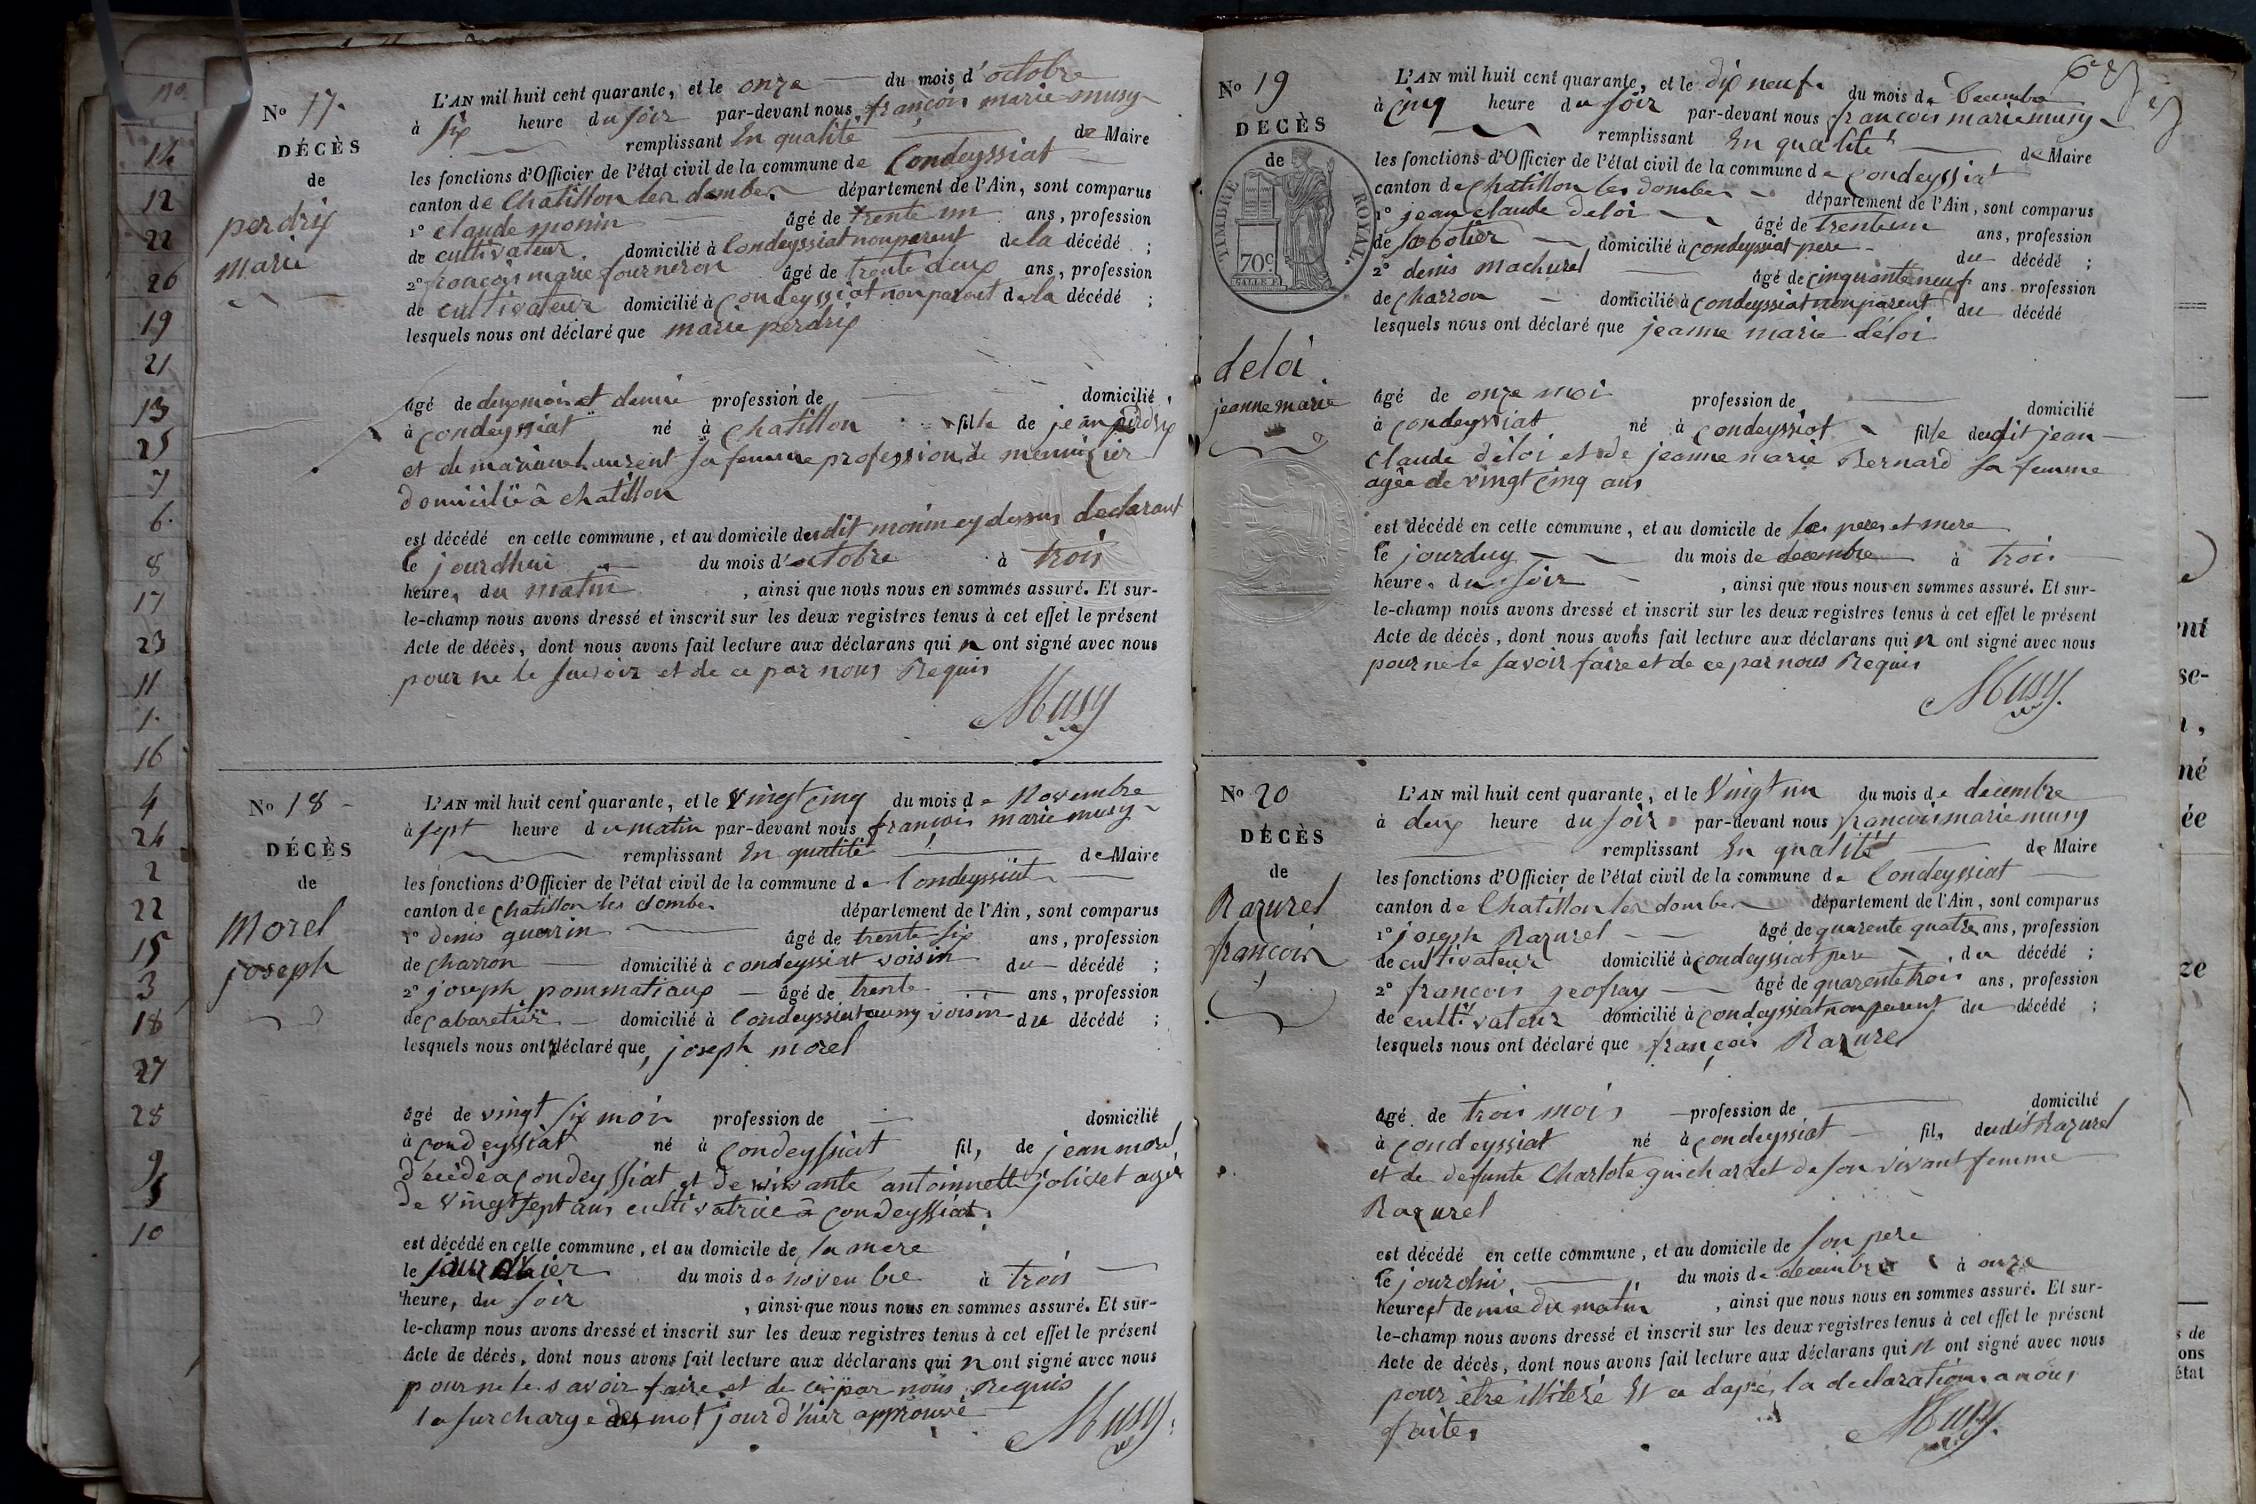 No
14
12
22
26
19
21
13
25
7
6
8
17
23
11
1
16
4
24
2
22
15
3
18
27
28
9
5
10
No 17
DÉCÈS
de
perdrix
marie
L'AN mil huit cent quarante, et le onze du mois d'octobre
à six heure du soir par-devant nous françois marie musy
remplissant En qualité de Maire
les fonctions d'Officier de l'état civil de la commune de Condeyssiat
canton de Chatillon les dombes département de l'Ain, sont comparus
1o claude monin âgé de trente un ans, profession
de cultivateur domicilié à Condeyssiat non parent de la décédé ;
2o françois marie fourneron âgé de trente deux ans, profession
de cultivateur domicilié à Condeyssiat non parent de la décédé ;
lesquels nous ont déclaré que marie perdrix
âgé de deux mois et demie profession de domicilié
à condeyssiat né à chatillon fille de jean perdrix
et de mariane laurent sa femme profession de menuisier
domicilié à chatillon
est décédé en cette commune, et au domicile dudit monin cy dessus declarant
le jourdhui du mois d'octobre à trois
heures du matin , ainsi que nous nous en sommes assuré. Et sur-
le-champ nous avons dressé et inscrit sur les deux registres tenus à cet effet le présent
Acte de décès, dont nous avons fait lecture aux déclarans qui n ont signé avec nous
pour ne le savoir et de ce par nous Requis
Musy
No 18
DÉCÈS
de
Morel
joseph
L'AN mil huit cent quarante, et le vingt cinq du mois de Novembre
à sept heure du matin par-devant nous françois marie musy
remplissant En qualité de Maire
les fonctions d'Officier de l'état civil de la commune de Condeyssiat
canton de chatillon les dombes département de l'Ain, sont comparus
1o denis guerrin âgé de trente six ans, profession
de charron domicilié à condeyssiat voisin du décédé ;
2o joseph pommatiaux âgé de trente ans, profession
de cabaretier domicilié à Condeyssiat aussy voisin du décédé ;
lesquels nous ont déclaré que joseph morel
âgé de vingt six mois profession de domicilié
à condeyssiat né à condeyssiat fils de jean morel
décédé a condeyssiat et de vivante antoinnette jolivet agée
de vingt sept ans cultivatrice à condeyssiat
est décédé en cette commune, et au domicile de sa mere
le jour d'hier du mois de novembre à trois
heures du soir , ainsi que nous nous en sommes assuré. Et sur-
le-champ nous avons dressé et inscrit sur les deux registres tenus à cet effet le présent
Acte de décès, dont nous avons fait lecture aux déclarans qui n ont signé avec nous
pour ne le savoir faire et de ce par nous Requis
la surcharge des mot jour d'hier approuvé
Musy
No 19
DECÈS
de
TIMBRE ROYAL.
70c
deloi
jeanne marie
L'AN mil huit cent quarante, et le dix neuf du mois de Decembre
à cinq heure du soir par-devant nous françois marie musy
remplissant En qualité de Maire
les fonctions d'Officier de l'état civil de la commune de Condeyssiat
canton de Chatillon les dombes département de l'Ain, sont comparus
1o jean claude deloi âgé de trente un ans, profession
de sabotier domicilié à condeyssiat pere du décédé ;
2o denis machurel âgé de cinquante neuf ans profession
de charron domicilié à condeyssiat non parent du décédé
lesquels nous ont déclaré que jeanne marie deloi
âgé de onze moi profession de domicilié
à condeyssiat né à condeyssiat fille dudit jean
claude deloi et de jeanne marie Bernard sa femme
agée de vingt cinq ans
est décédé en cette commune, et au domicile de ses peres et mere
le jourduy du mois de decembre à trois
heures du soir , ainsi que nous nous en sommes assuré. Et sur-
le-champ nous avons dressé et inscrit sur les deux registres tenus à cet effet le présent
Acte de décès, dont nous avons fait lecture aux déclarans qui n ont signé avec nous
pour ne le savoir faire et de ce par nous Requis
Musy
No 20
DÉCÈS
de
Razurel
françois
L'AN mil huit cent quarante, et le Vingt un du mois de decembre
à deux heure du soir par-devant nous françois marie musy
remplissant En qualité de Maire
les fonctions d'Officier de l'état civil de la commune de Condeyssiat
canton de Chatillon les dombes département de l'Ain, sont comparus
1o joseph Razurel âgé de quarente quatre ans, profession
de cultivateur domicilié à condeyssiat pere du décédé ;
2o françois geofray âgé de quarente trois ans, profession
de cultivateur domicilié à condeyssiat non parent du décédé ;
lesquels nous ont déclaré que françois Razurel
âgé de trois mois profession de domicilié
à condeyssiat né à condeyssiat fils dudit Razurel
et de defunte Charlote guichardet de son vivant femme
Razurel
est décédé en cette commune, et au domicile de son pere
le jourdhui du mois de decembre à onze
heures et demie du matin , ainsi que nous nous en sommes assuré. Et sur-
le-champ nous avons dressé et inscrit sur les deux registres tenus à cet effet le présent
Acte de décès, dont nous avons fait lecture aux déclarans qui n ont signé avec nous
pour être illiteré Et ce dapres la declaration a nous
faites
Musy